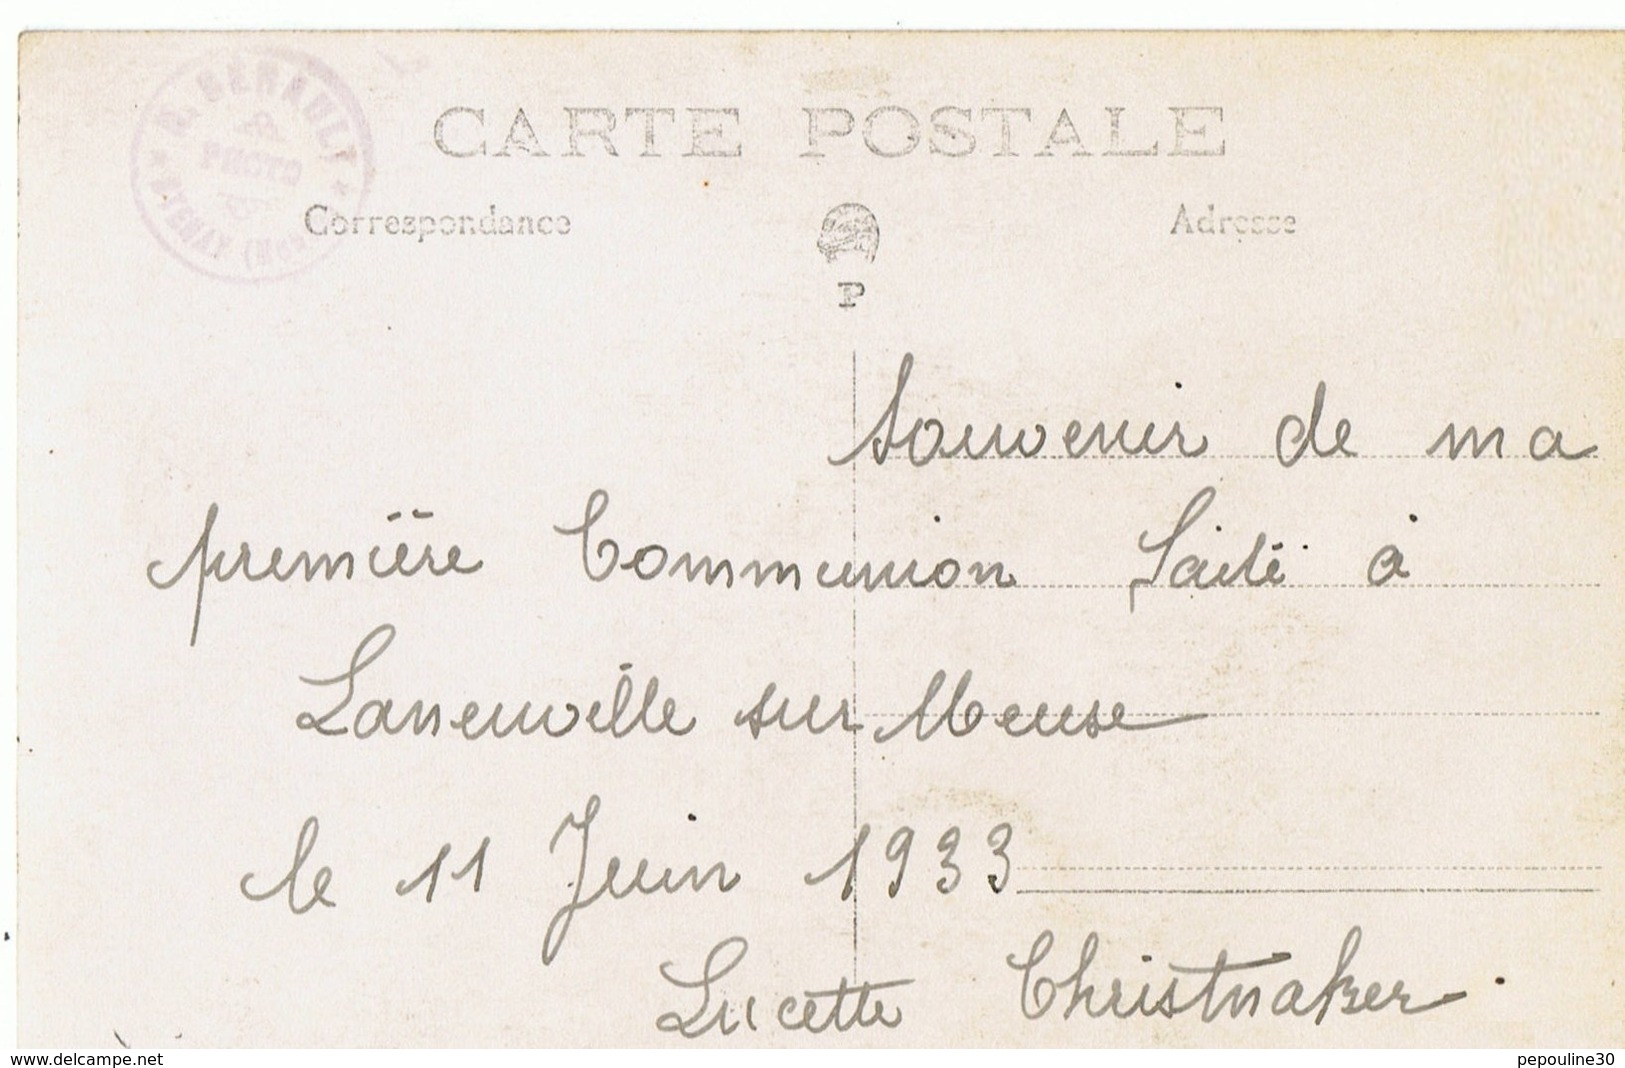 R. RENAULT
PHOTO
CARTE POSTALE
Correspondance
Adresse
P
Souvenir de ma
première Communion faite à
Laneuville sur Meuse
le 11 Juin 1933
Lucette Christnaker
www.delcampe.net
pepouline30